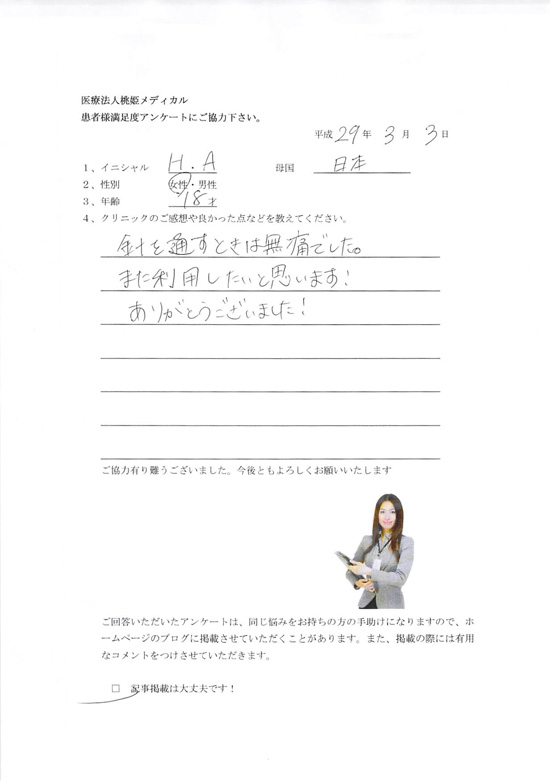 医療法人桃姫メディカル
患者様満足度アンケートにご協力下さい。
平成 29 年 3 月 3 日
1、イニシャル H.A 母国 日本
2、性別 女性・男性
3、年齢 18 才
4、クリニックのご感想や良かった点などを教えてください。
針を通すときは無痛でした。
また利用したいと思います!
ありがとうございました!
ご協力有り難うございました。今後ともよろしくお願いいたします
ご回答いただいたアンケートは、同じ悩みをお持ちの方の手助けになりますので、ホ
ームページのブログに掲載させていただくことがあります。また、掲載の際には有用
なコメントをつけさせていただきます。
□ 記事掲載は大丈夫です!